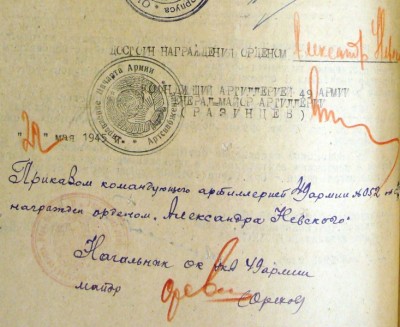 ДОСТОИН НАГРАЖДЕНИЯ ОРДЕНОМ Александр
КОМАНДУЮЩИЙ АРТИЛЛЕРИЕЙ 49 АРМИИ
ГЕНЕРАЛ-МАЙОР АРТИЛЛЕРИИ
(РАЗИНЦЕВ)
"20" мая 1945
Приказом командующего артиллерией 49 армии № 052
награжден орденом „Александра Невского"
Начальник 49 армии
майор (Орехов)